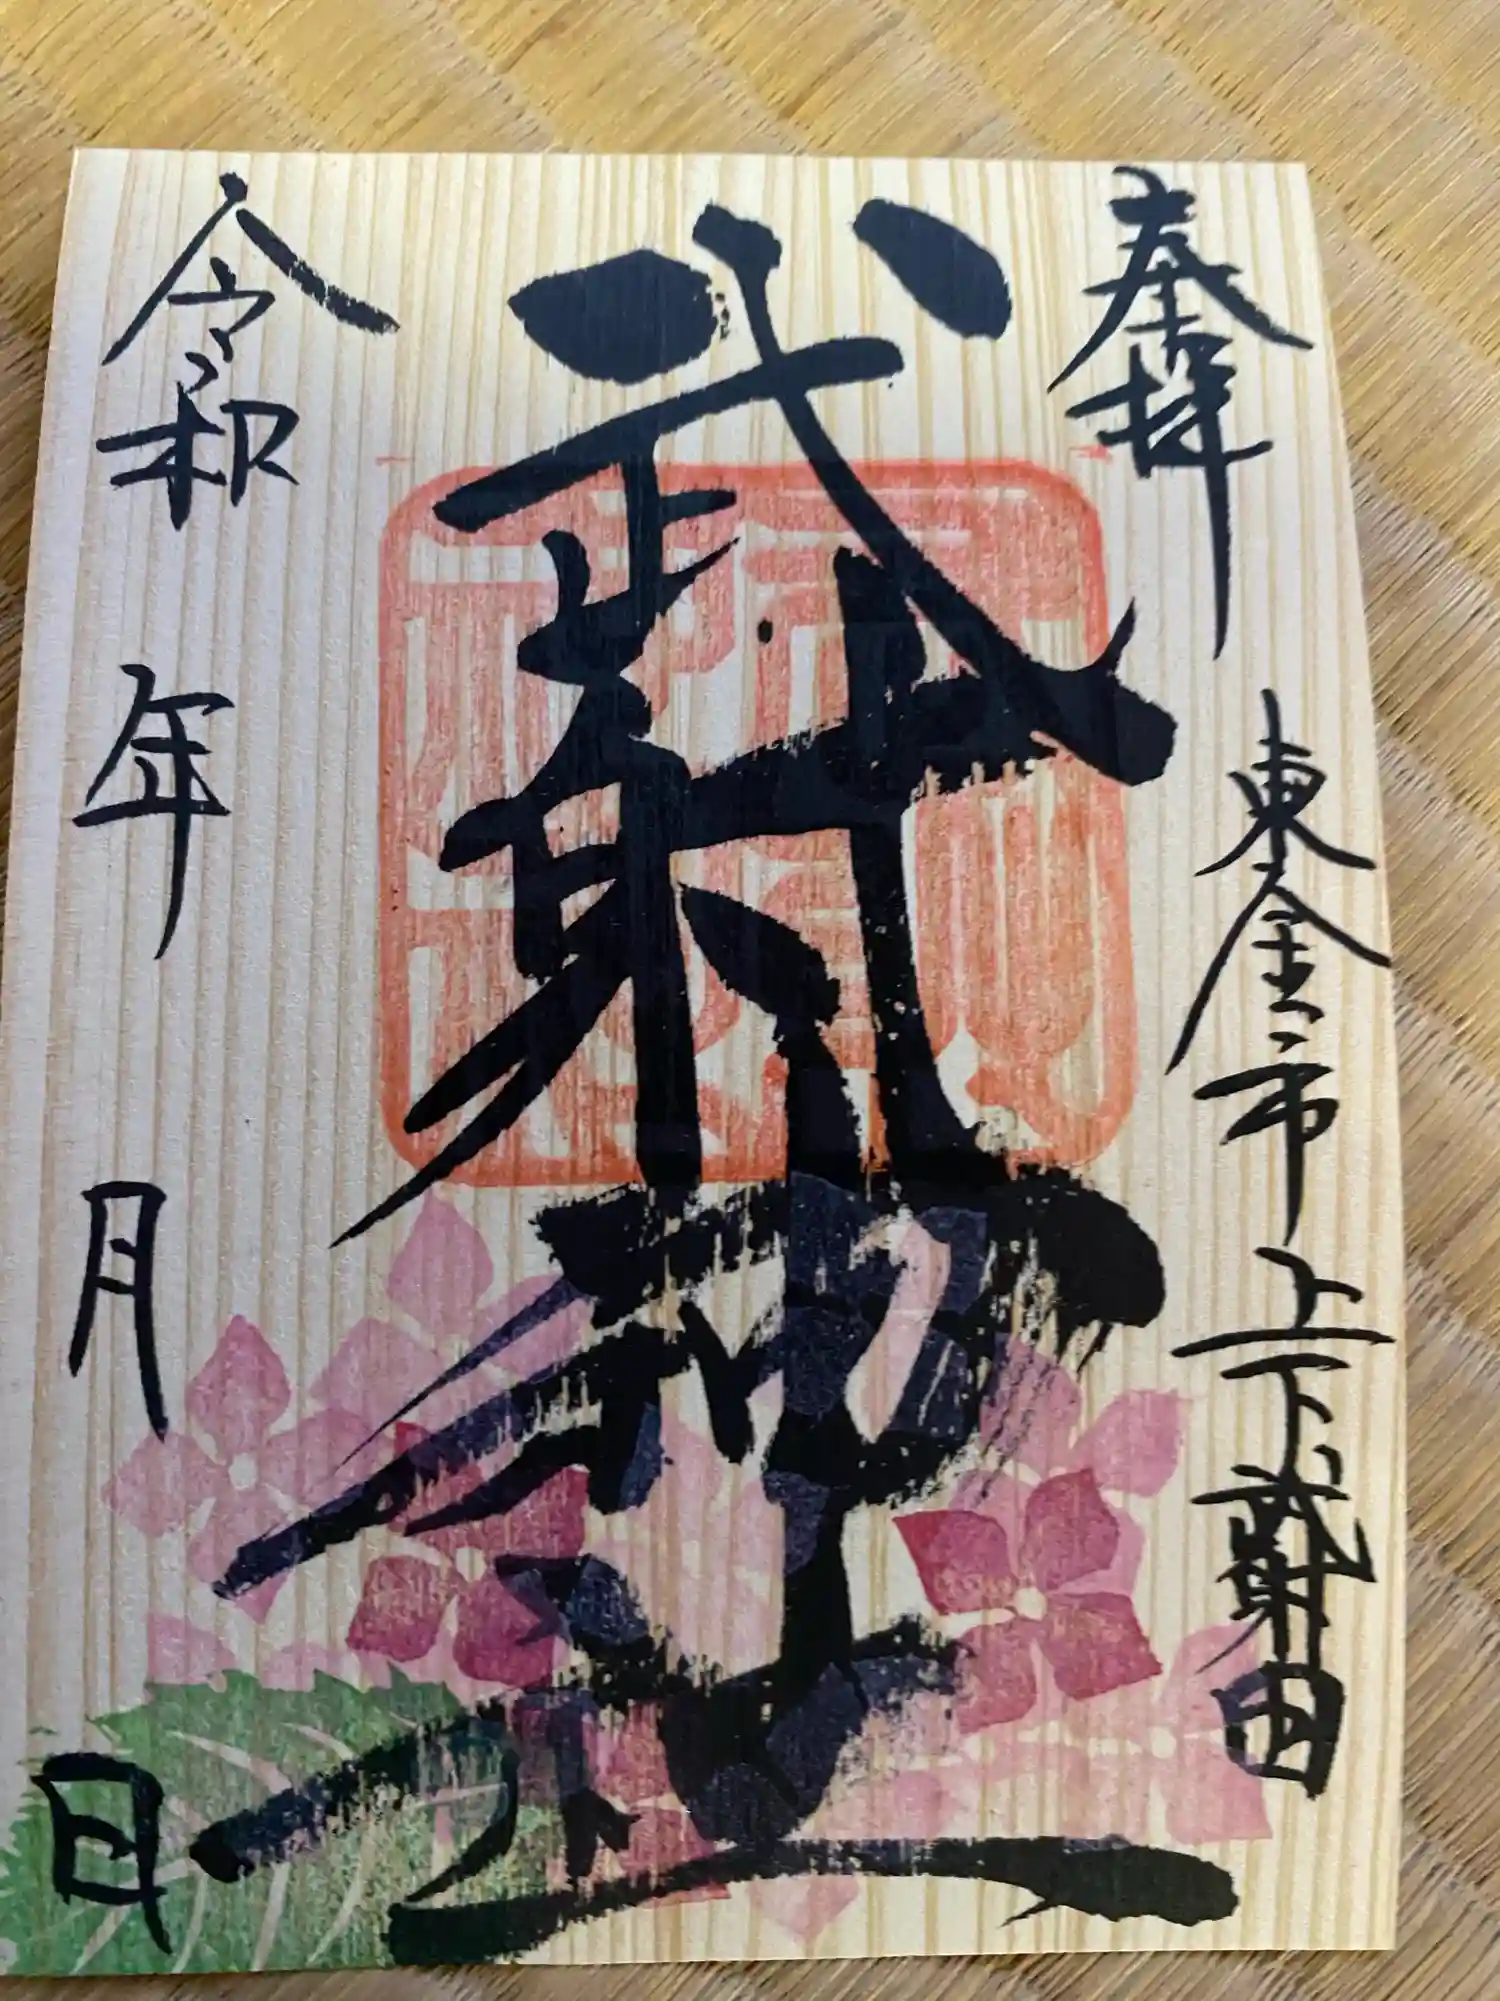 奉拝
東金市上下武射田
武射神社
令和 年 月 日